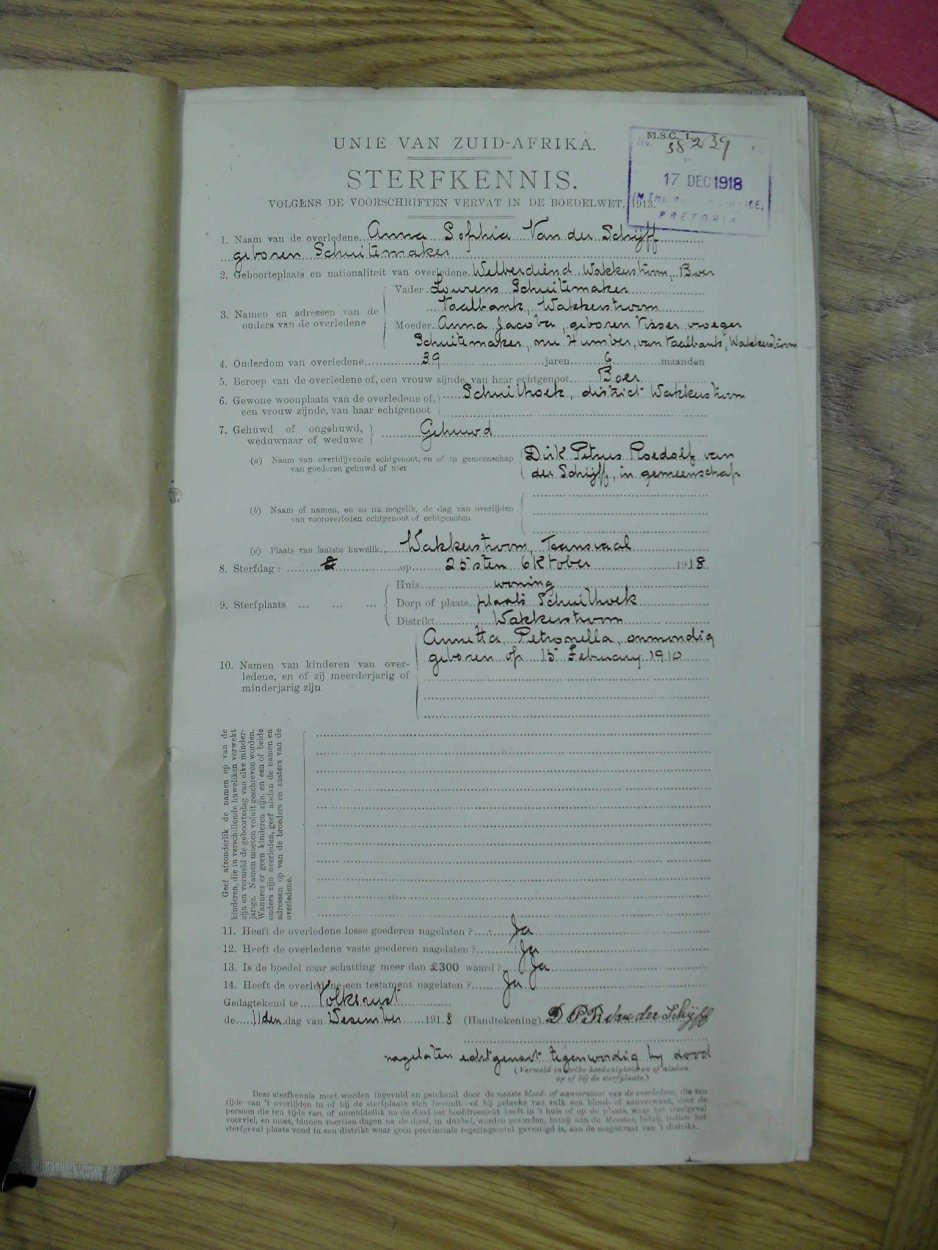 UNIE VAN ZUID-AFRIKA.
M.S.C. 1.
No. 38239
17 DEC 1918
PRETORIA
STERFKENNIS.
VOLGENS DE VOORSCHRIFTEN VERVAT IN DE BOEDELWET, 1913.
1. Naam van de overledene Anna Sophia Van der Schijff
geboren Schuitemaker
2. Geboorteplaats en nationaliteit van overledene Welverdiend, Wakkerstroom, Boer
3. Namen en adressen van de ouders van de overledene
Vader Lourens Schuitemaker
Vaalbank, Wakkerstroom
Moeder Anna Jacoba, geboren Visser vroeger
Schuitemaker, nu Humber, van Vaalbank, Wakkerstroom
4. Ouderdom van overledene 39 jaren 6 maanden
5. Beroep van de overledene of, een vrouw zijnde, van haar echtgenoot Boer
6. Gewone woonplaats van de overledene of, een vrouw zijnde, van haar echtgenoot Schuilhoek, district Wakkerstroom
7. Gehuwd of ongehuwd, weduwnaar of weduwe Gehuwd
(a) Naam van overblijvende echtgenoot, en of in gemeenschap van goederen gehuwd of niet
Dirk Petrus Roedolf van
der Schijff, in gemeenschap
(b) Naam of namen, en zo na mogelik, de dag van overlijden van vooroverleden echtgenoot of echtgenoten
(c) Plaats van laatste huwelik Wakkerstroom, Transvaal
8. Sterfdag: op 25sten Oktober 1918
9. Sterfplaats ... ... ...
Huis woning
Dorp of plaats plaats Schuilhoek
Distrikt Wakkerstroom
10. Namen van kinderen van overledene, en of zij meerderjarig of minderjarig zijn
Annetta Petronella, onmondig
geboren op 15 February 1910
Geef afzonderlik de namen op van de
kinderen, die in verschillende huweliken verwekt
zijn en vermeld de geboortedag van elke minderjarige. Namen moeten voluit geschreven worden.
Wanneer er geen kinderen zijn, en een of beide
ouders zijn overleden, geef alsdan de namen en
adressen op van de broeders en zusters van de
overledene.
11. Heeft de overledene losse goederen nagelaten? Ja
12. Heeft de overledene vaste goederen nagelaten? Ja
13. Is de boedel naar schatting meer dan £300 waard? Ja
14. Heeft de overledene een testament nagelaten? Ja
Gedagtekend te Volksrust
de 11den dag van Desember 1918 (Handtekening) D P R van der Schijff
nagelaten echtgenoot tegenwoordig by dood
(Vermeld in welke hoedanigheid en of aanden
op of bij de sterfplaats.)
Deze sterfkennis moet worden ingevuld en getekend door de naaste bloed- of aanverwant van de overledene, die ten
tijde van 't overlijden in of bij de sterfplaats zich bevindt—of bij gebreke van zulk een bloed- of aanverwant, door de
persoon die ten tijde van, of onmiddellik na de dood het hoofdtoezicht heeft in 't huis of op de plaats, waar het sterfgeval
voorviel, en moet, binnen veertien dagen na de dood, in dubbel, worden gezonden, hetzij aan de Meester, hetzij, indien het
sterfgeval plaats vond in een distrikt waar geen provinciale regeringszetel gevestigd is, aan de magistraat van 't distrikt.